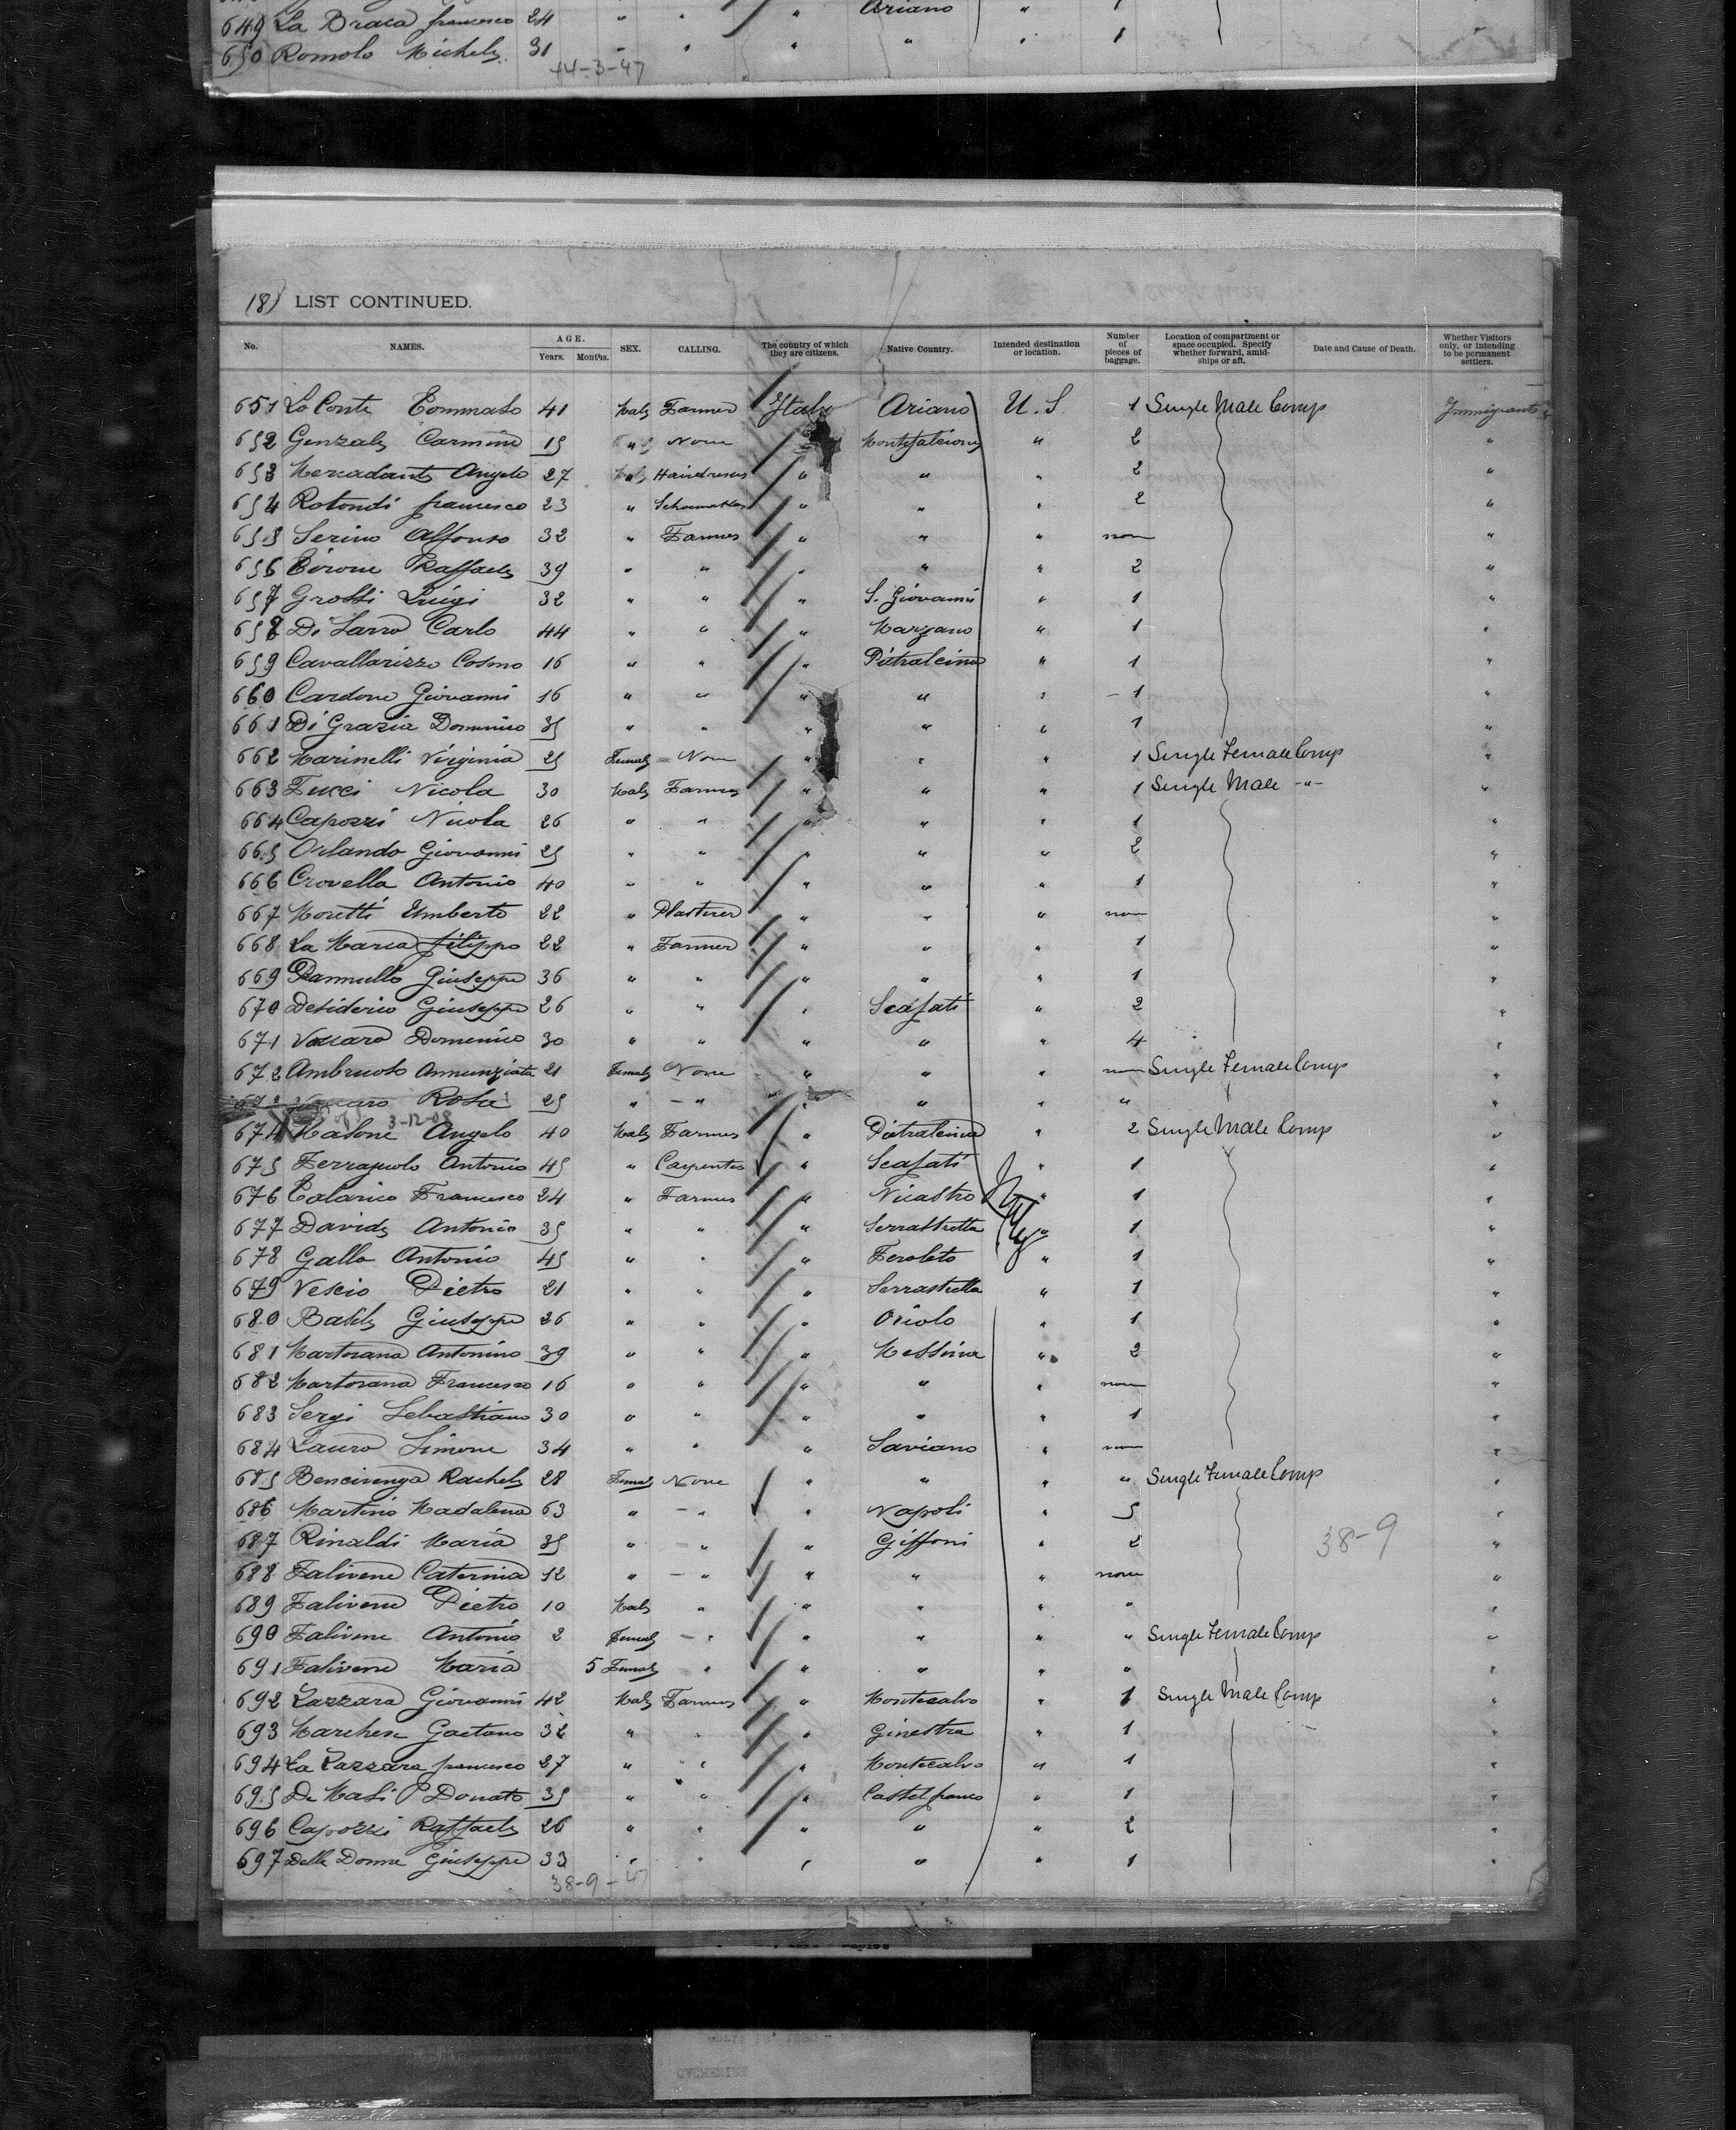 Ariano " 1
649 La Braca francesco 24 " " " " "
650 Romolo Michele 31 " " " " " 1
44-3-47
(8) LIST CONTINUED.
No. NAMES. AGE. Years. Months. SEX. CALLING. The country of which they are citizens. Native Country. Intended destination or location. Number of pieces of baggage. Location of compartment or space occupied. Specify whether forward, amidships or aft. Date and Cause of Death. Whether Visitors only, or intending to be permanent settlers.
651 Lo Conte Tommaso 41 Male Farmer Italy Ariano U.S. 1 Single Male Comp Immigrants
652 Genzale Carmine 15 " None " Montefalcione " 2 "
653 Mercadante Angelo 27 Male Hairdresser " " " 2 "
654 Rotondi francesco 23 " Schoemaker " " " 2 "
655 Serino Alfonso 32 " Farmer " " " non "
656 Cirone Raffaele 39 " " " " " 2 "
657 Grossi Luigi 32 " " " S. Giovanni " 1 "
658 Di Sarro Carlo 44 " " " Marzano " 1 "
659 Cavallarizzo Cosmo 16 " " " Pietralcina " 1 "
660 Cardone Giovanni 16 " " " " " 1 "
661 Di Grazia Domenico 35 " " " " " 1 "
662 Marinelli Virginia 25 Female None " " " 1 Single Female Comp "
663 Fucci Nicola 30 Male Farmer " " " 1 Single Male -"- "
664 Capozzi Nicola 26 " " " " " 1 "
665 Orlando Giovanni 25 " " " " " 2 "
666 Crovella Antonio 40 " " " " " 1 "
667 Moretti Umberto 22 " Plasterer " " " non "
668 La Marca filippo 22 " Farmer " " " 1 "
669 Pannullo Giuseppe 36 " " " " " 1 "
670 Desiderio Giuseppe 26 " " " Scafati " 2 "
671 Vaccaro Domenico 30 " " " " " 4 "
672 Ambruoso Annunziata 21 Female None " " " non Single Female Comp "
Rosa 25 " - " " " " " "
3-12-08
674 Masone Angelo 40 Male Farmer " Pietralcina " 2 Single Male Comp "
675 Ferraiuolo Antonio 45 " Carpenter " Scafati " 1 "
676 Talarico Francesco 24 " Farmer " Nicastro " 1 "
677 Davide Antonio 35 " " " Serrastretta " 1 "
678 Gallo Antonio 45 " " " Feroleto " 1 "
679 Vescio Pietro 21 " " " Serrastretta " 1 "
680 Basile Giuseppe 26 " " " Oriolo " 1 "
681 Martorana Antonino 39 " " " Messina " 2 "
682 Martorana Francesco 16 " " " " " non "
683 Sergi Sebastiano 30 " " " " " 1 "
684 Lauro Simone 34 " " " Saviano " non "
685 Bencivenga Rachele 28 Female None " " " " Single Female Comp "
686 Martino Madalena 63 " - " " Napoli " 5 "
687 Rinaldi Maria 35 " - " " Giffoni " 2 38-9 "
688 Falivene Caterina 12 " - " " " " non "
689 Falivene Pietro 10 Male " " " " " "
690 Falivene Antonio 2 Female - " " " " " Single Female Comp "
691 Falivene Maria 5 Female " " " " " "
692 Lazzara Giovanni 42 Male Farmer " Montecalvo " 1 Single Male Comp "
693 Marchese Gaetano 32 " " " Ginestra " 1 "
694 La Lazzara francesco 27 " " " Montecalvo " 1 "
695 De Masi P Donato 35 " " " Castelfranco " 1 "
696 Capozzi Raffaele 26 " " " " " 2 "
697 Delle Donne Giuseppe 33 " " " " " 1 "
38-9-47